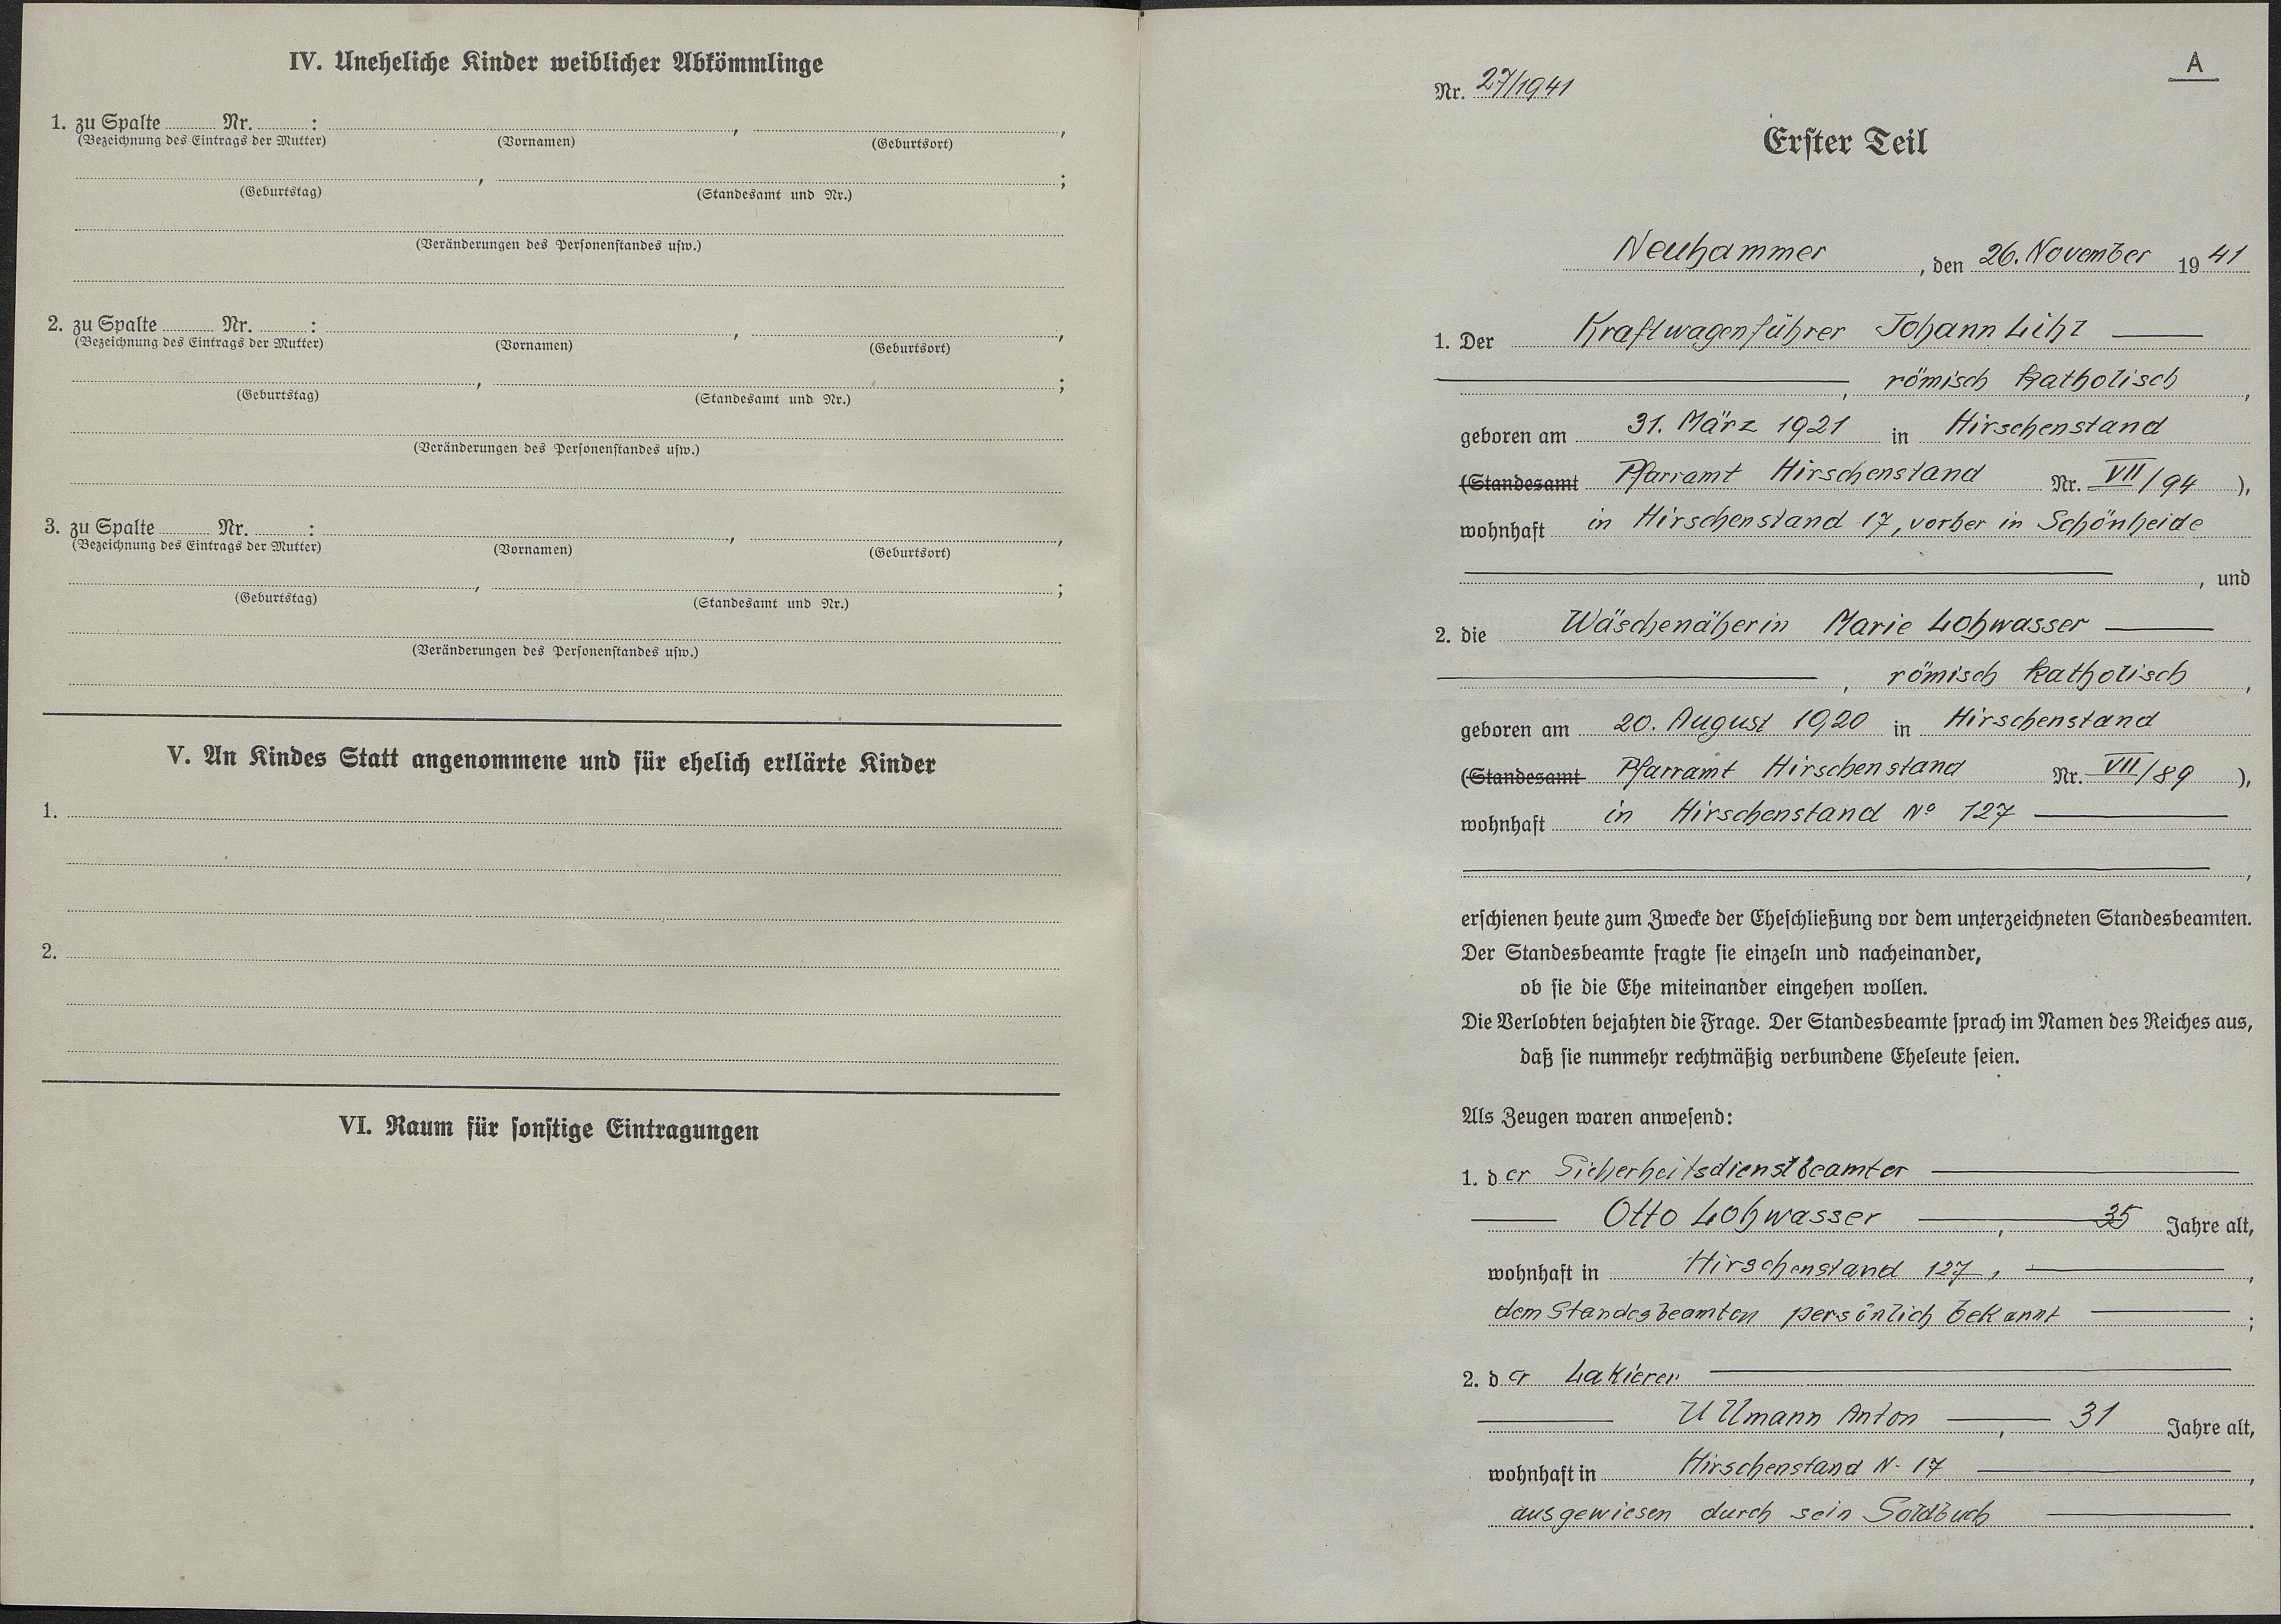 IV. Uneheliche Kinder weiblicher Abkömmlinge
1. zu Spalte ........ Nr. ........ : ........ , ........ ,
(Bezeichnung des Eintrags der Mutter) (Vornamen) (Geburtsort)
........ , ........ ;
(Geburtstag) (Standesamt und Nr.)
(Veränderungen des Personenstandes usw.)
2. zu Spalte ........ Nr. ........ : ........ , ........ ,
(Bezeichnung des Eintrags der Mutter) (Vornamen) (Geburtsort)
........ , ........ ;
(Geburtstag) (Standesamt und Nr.)
(Veränderungen des Personenstandes usw.)
3. zu Spalte ........ Nr. ........ : ........ , ........ ,
(Bezeichnung des Eintrags der Mutter) (Vornamen) (Geburtsort)
........ , ........ ;
(Geburtstag) (Standesamt und Nr.)
(Veränderungen des Personenstandes usw.)
V. An Kindes Statt angenommene und für ehelich erklärte Kinder
1.
2.
VI. Raum für sonstige Eintragungen
A
Nr. 27/1941
Erster Teil
Neuhammer, den 26. November 1941
1. Der Kraftwagenführer Johann
, römisch katholisch,
geboren am 31. März 1921 in Hirschenstand
(Standesamt Pfarramt Hirschenstand Nr. VII/94),
wohnhaft in Hirschenstand 17, vorher in Schönheide
, und
2. die Wäschenäherin Marie Lohwasser
, römisch katholisch,
geboren am 20. August 1920 in Hirschenstand
(Standesamt Pfarramt Hirschenstand Nr. VII/89),
wohnhaft in Hirschenstand No 127
,
erschienen heute zum Zwecke der Eheschließung vor dem unterzeichneten Standesbeamten.
Der Standesbeamte fragte sie einzeln und nacheinander,
ob sie die Ehe miteinander eingehen wollen.
Die Verlobten bejahten die Frage. Der Standesbeamte sprach im Namen des Reiches aus,
daß sie nunmehr rechtmäßig verbundene Eheleute seien.
Als Zeugen waren anwesend:
1. der Sicherheitsdienstbeamter
Otto Lohwasser, 35 Jahre alt,
wohnhaft in Hirschenstand 127,,
dem Standesbeamten persönlich bekannt ;
2. der Lakierer
Ullmann Anton, 31 Jahre alt,
wohnhaft in Hirschenstand N. 17,
ausgewiesen durch sein Soldbuch.